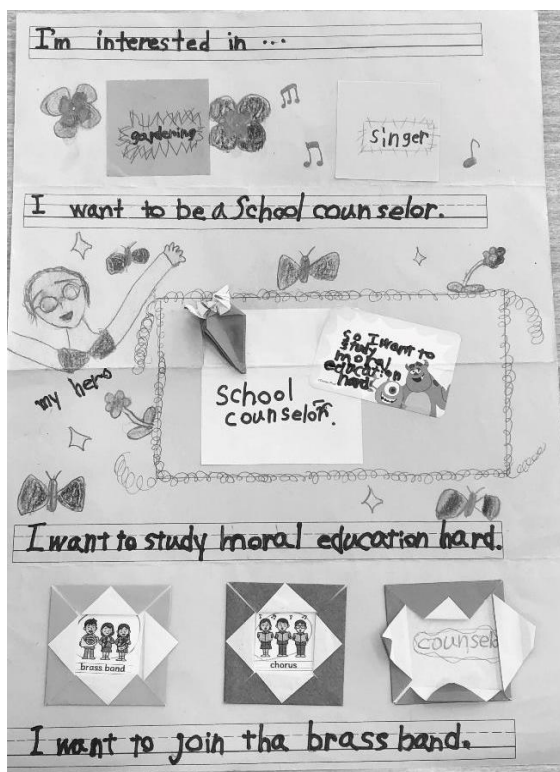 I'm interested in ...
gardening
singer
I want to be a School counselor.
my hero
School
counselor.
So I want to
study
moral
education
hard.
I want to study moral education hard.
brass band
chorus
counsel
I want to join tha brass band.